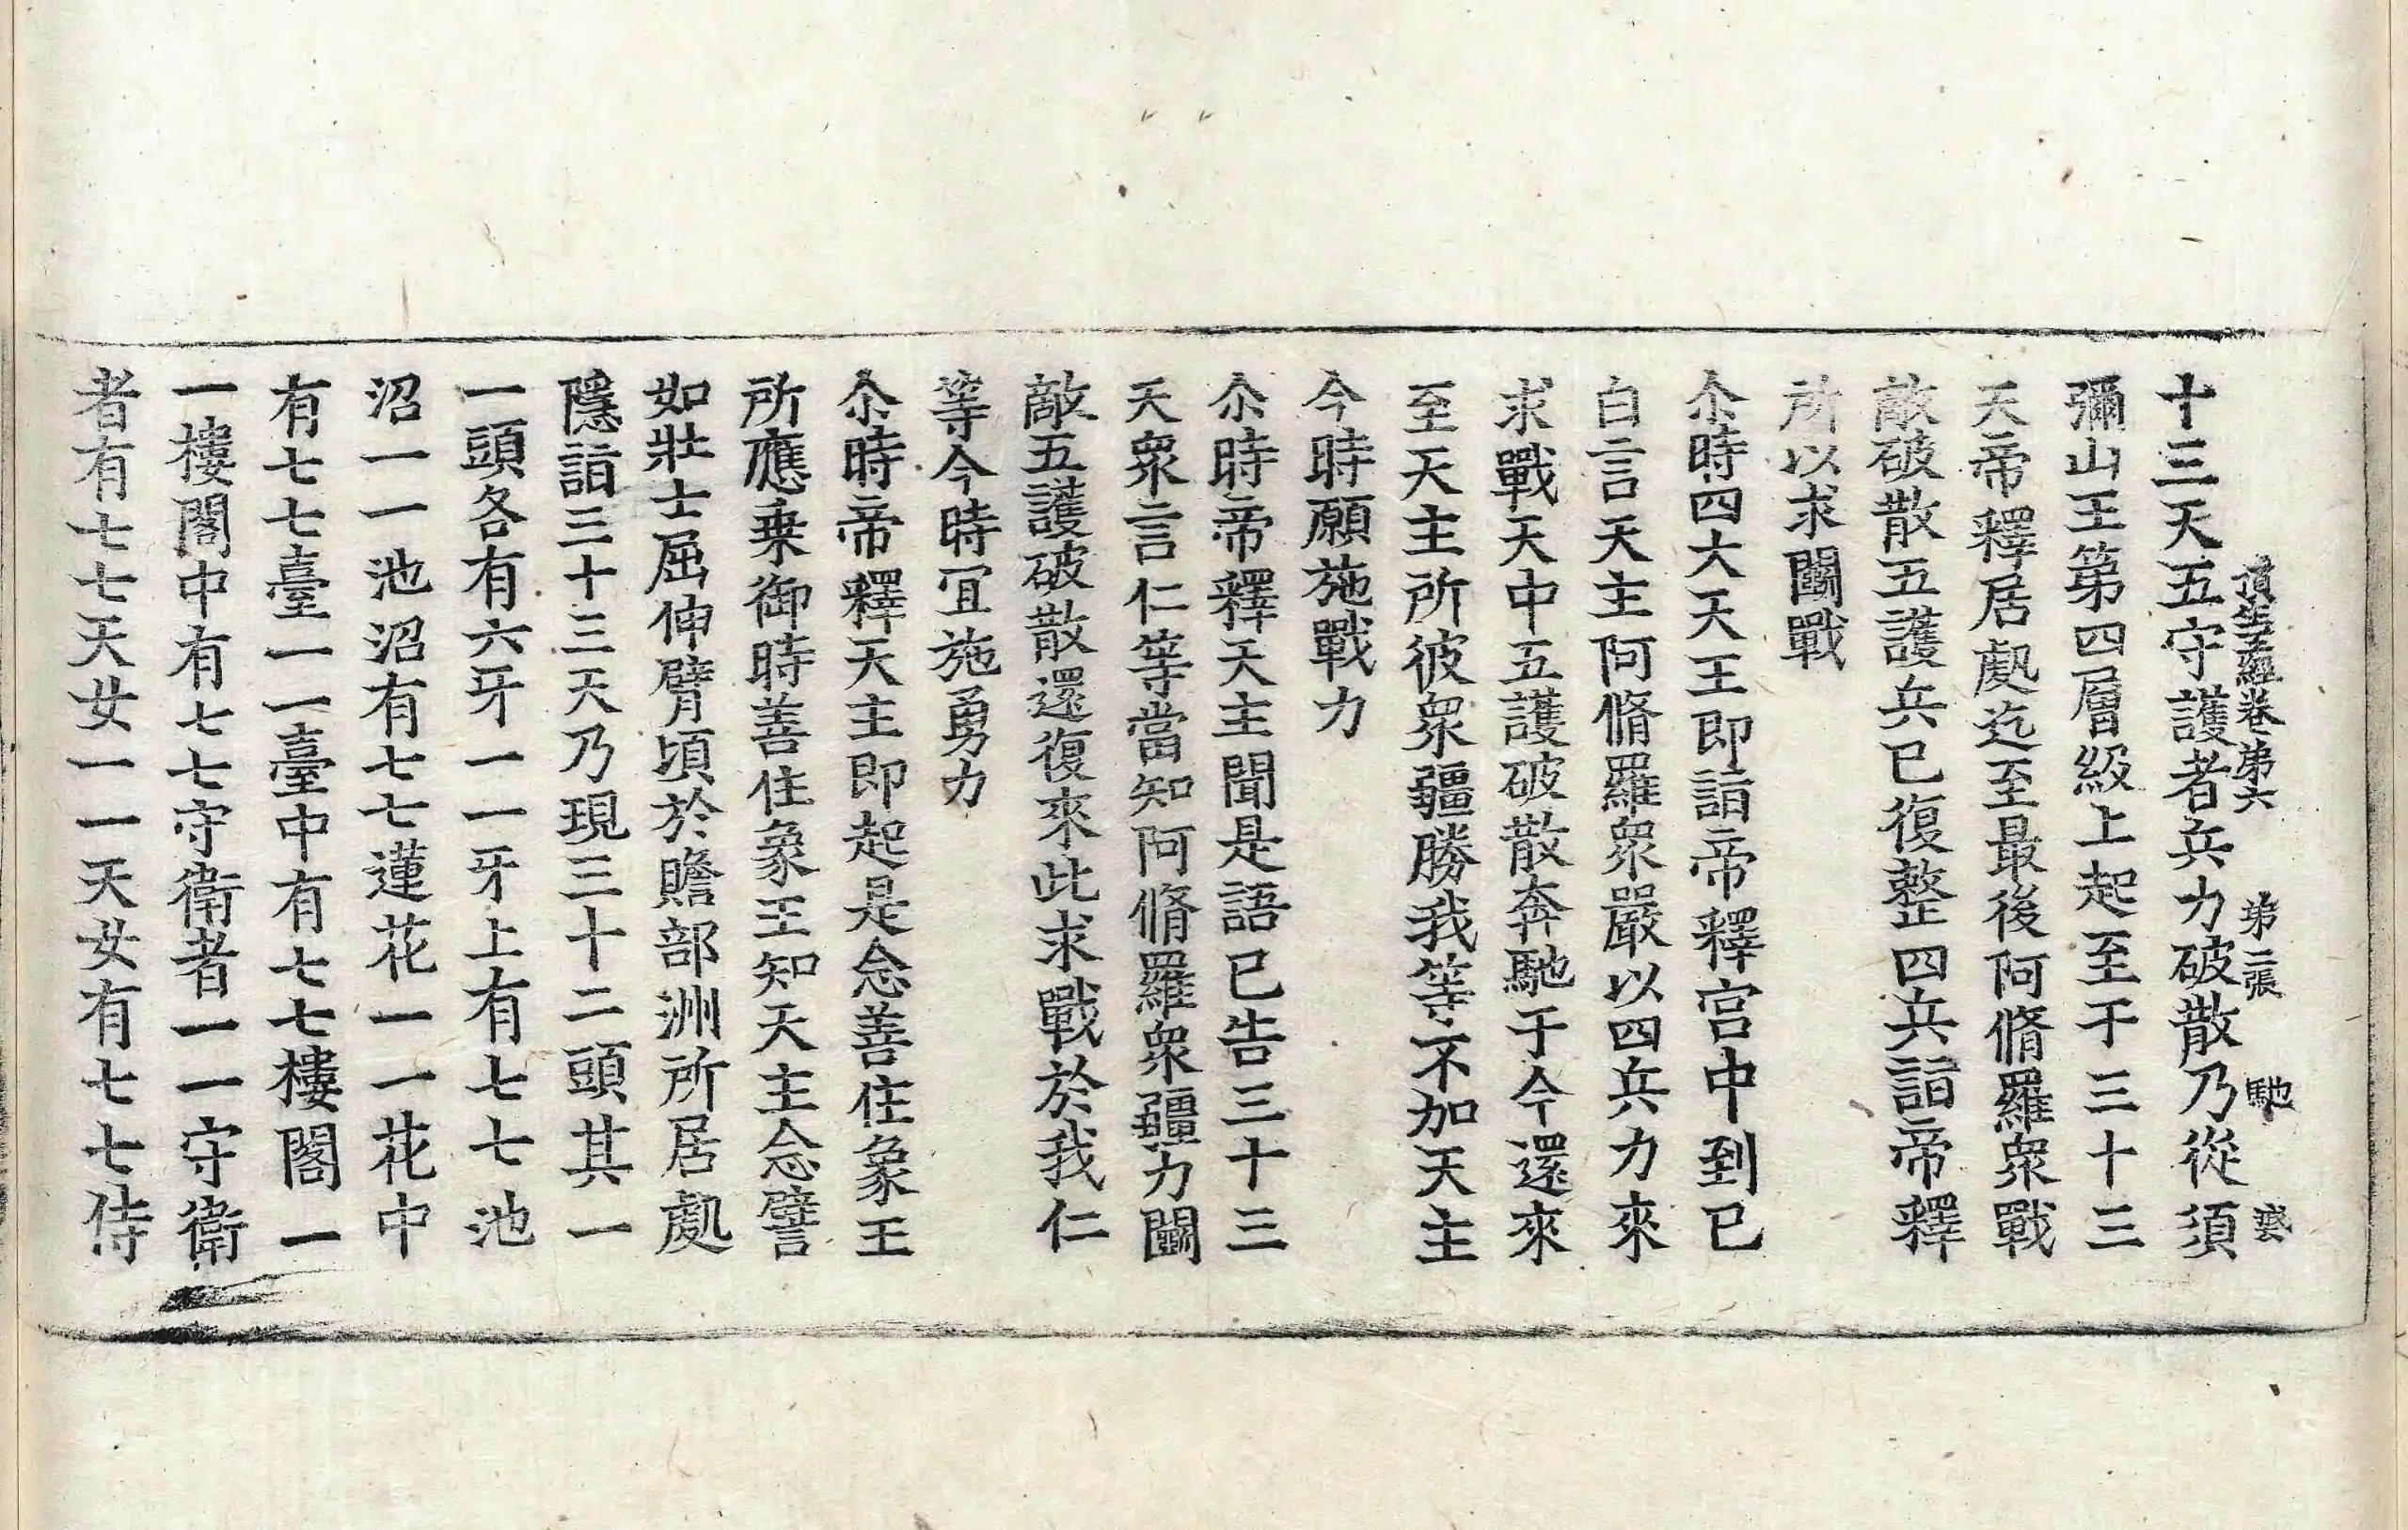 頂生王經卷第六　第二張　馳　𡖉
十三天五守護者兵力破散乃從須
彌山王第四層級上起至于三十三
天帝釋居處迄至最後阿脩羅衆戰
敵破散五護兵已復整四兵詣帝釋
所以求鬪戰
尒時四大天王即詣帝釋宫中到已
白言天主阿脩羅衆嚴以四兵力來
求戰天中五護破散奔馳于今還來
至天主所彼衆彊勝我等不加天主
今時願施戰力
尒時帝釋天主聞是語已告三十三
天衆言仁等當知阿脩羅衆彊力鬪
敵五護破散還復來此求戰於我仁
等今時冝施勇力
尒時帝釋天主即起是念善住象王
所應乗御時善住象王知天主念譬
如壯士屈伸臂頃於贍部洲所居處
隱詣三十三天乃現三十二頭其一
一頭各有六牙一一牙上有七七池
沼一一池沼有七七蓮花一一花中
有七七臺一一臺中有七七樓閣一
一樓閣中有七七守衛者一一守衛
者有七七天女一一天女有七七侍